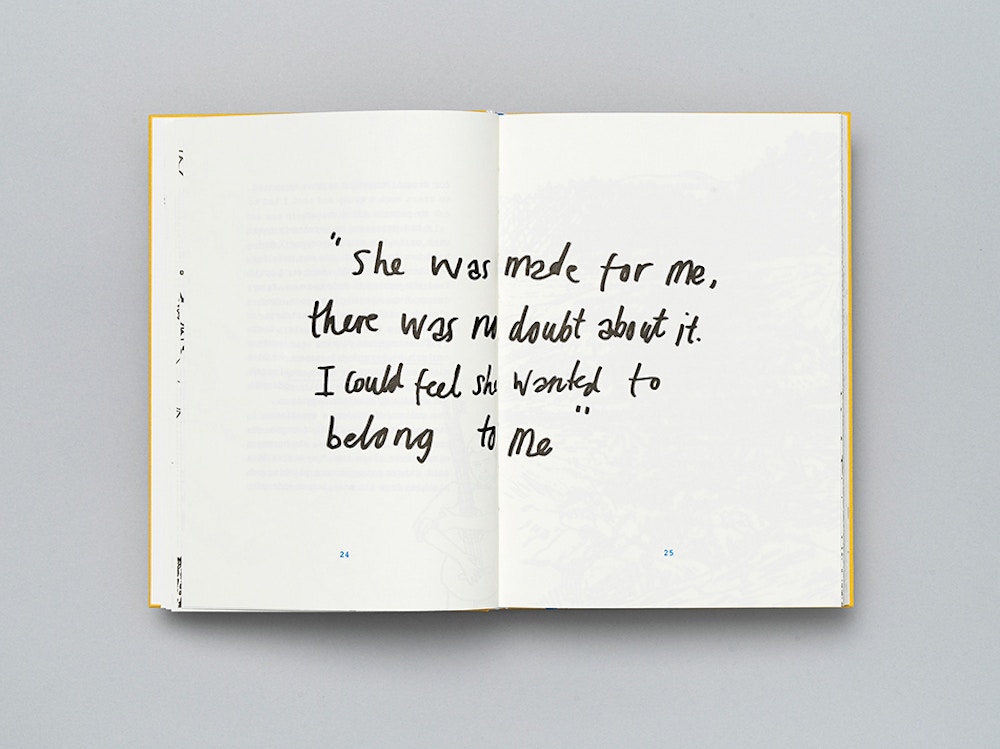 "She was made for me,
there was no doubt about it.
I could feel she wanted to
belong to me"
24
25